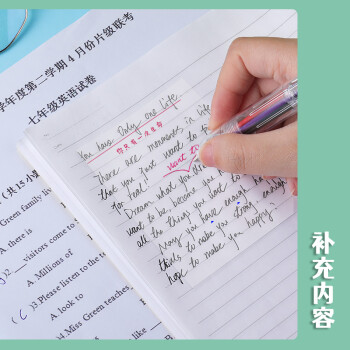 学年度第二学期4月份片级联考
七年级英语试卷
(共15小
Green family live
A. there is
)2. __ visitors come to
A. Millions of
)3. Please listen to the tea
A. look to
)4. Miss Green teaches
You have only one life
你只有一次生命
There are moments in life
that you just want to
want to
for real!
Dream what you
want to be, because you
all the things you want to
May you have enough
thinks to make you strong enough
hope to make you happy.
补充内容